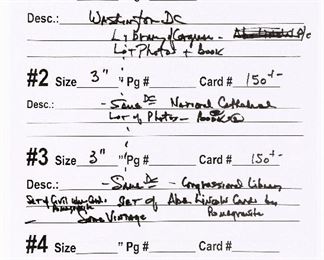 Desc.: Washington DC
Library of Congress
Lot Photos + Book
#2 Size 3" Pg # Card # 150+-
Desc.: - Same DC National Cathedral
Lot of Photos - Book
#3 Size 3" " Pg # Card # 150+-
Desc.: - Same DC - Congressional Library
Set of Civil War Cards Set of Abe Lincoln Cards by
Pomegranate Pomegranate
Same Vintage
#4 Size " Pg # Card #